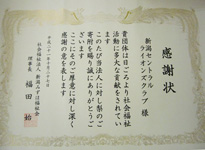 感謝状
新潟セントラル
ライオンズクラブ 様
貴団体は日ごろより社会福祉
活動に多大な貢献をされてい
ます
このたび当法人に対し梨のご
寄附を賜り誠にありがとうご
ざいます
ここにそのご厚意に対し深く
感謝の意を表します
社会福祉法人 新潟みずほ福祉会
理事長 福田